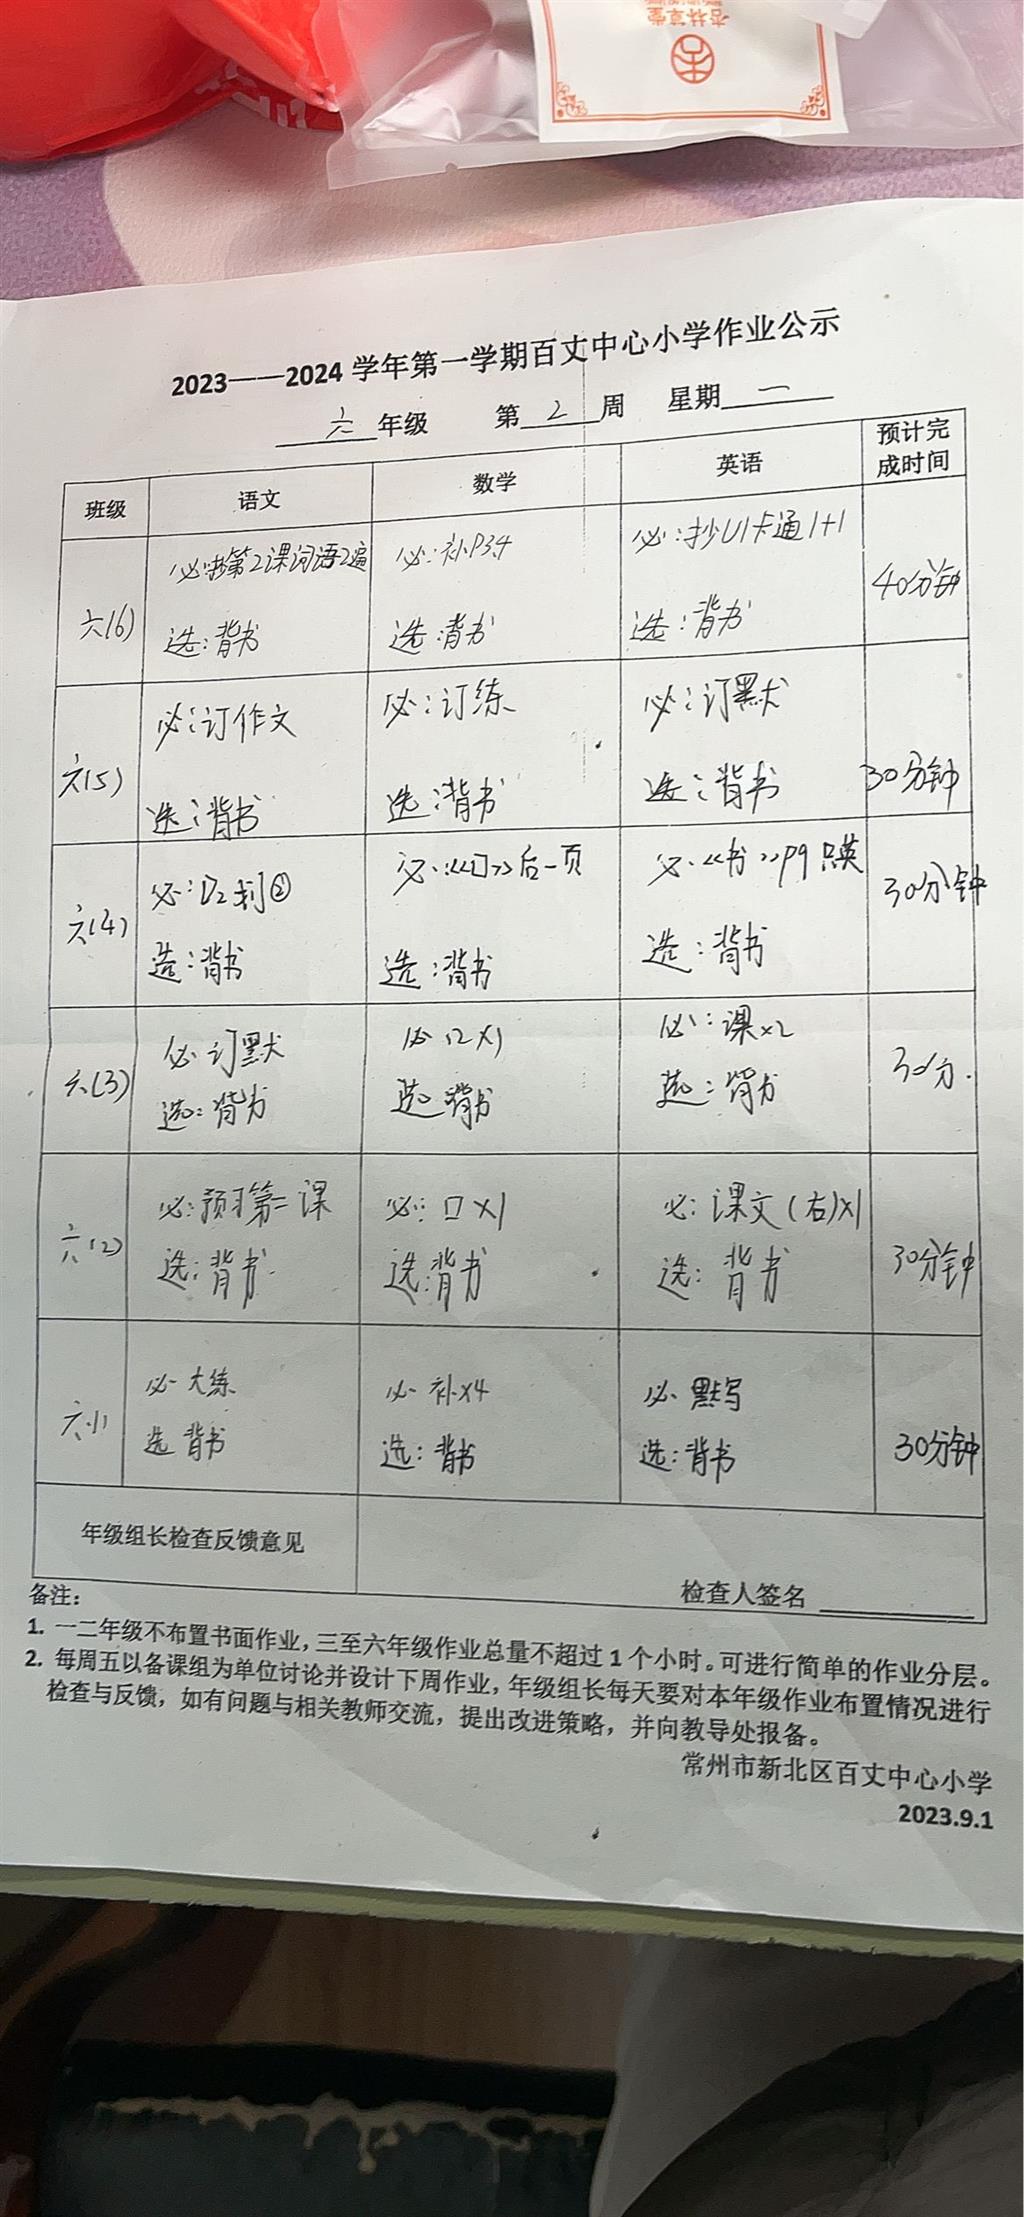 杏林草堂
2023——2024 学年第一学期百丈中心小学作业公示
六 年级 第 2 周 星期 一
班级 语文 数学 英语 预计完成时间
六(6) 必:抄第2课词语2遍 必:补P34 必:抄U1卡通1+1 40分钟
选:背书 选:背书 选:背书
六(5) 必:订作文 必:订练 必:订默 30分钟
选:背书 选:背书 选:背书
六(4) 必: 必:《口》后一页 必:《书》P9 30分钟
选:背书 选:背书 选:背书
六(3) 必 订默 必 口x1 必:课x2 30分.
选:背书 选 背书 选:背书
六(2) 必:预习第二课 必:口x1 必:课文(右)x1 30分钟
选:背书. 选:背书 选:背书
六(1) 必 大练 必 补x4 必 默写 30分钟
选 背书 选:背书 选:背书
年级组长检查反馈意见
检查人签名
备注:
1. 一二年级不布置书面作业,三至六年级作业总量不超过1个小时。可进行简单的作业分层。
2. 每周五以备课组为单位讨论并设计下周作业,年级组长每天要对本年级作业布置情况进行
检查与反馈,如有问题与相关教师交流,提出改进策略,并向教导处报备。
常州市新北区百丈中心小学
2023.9.1